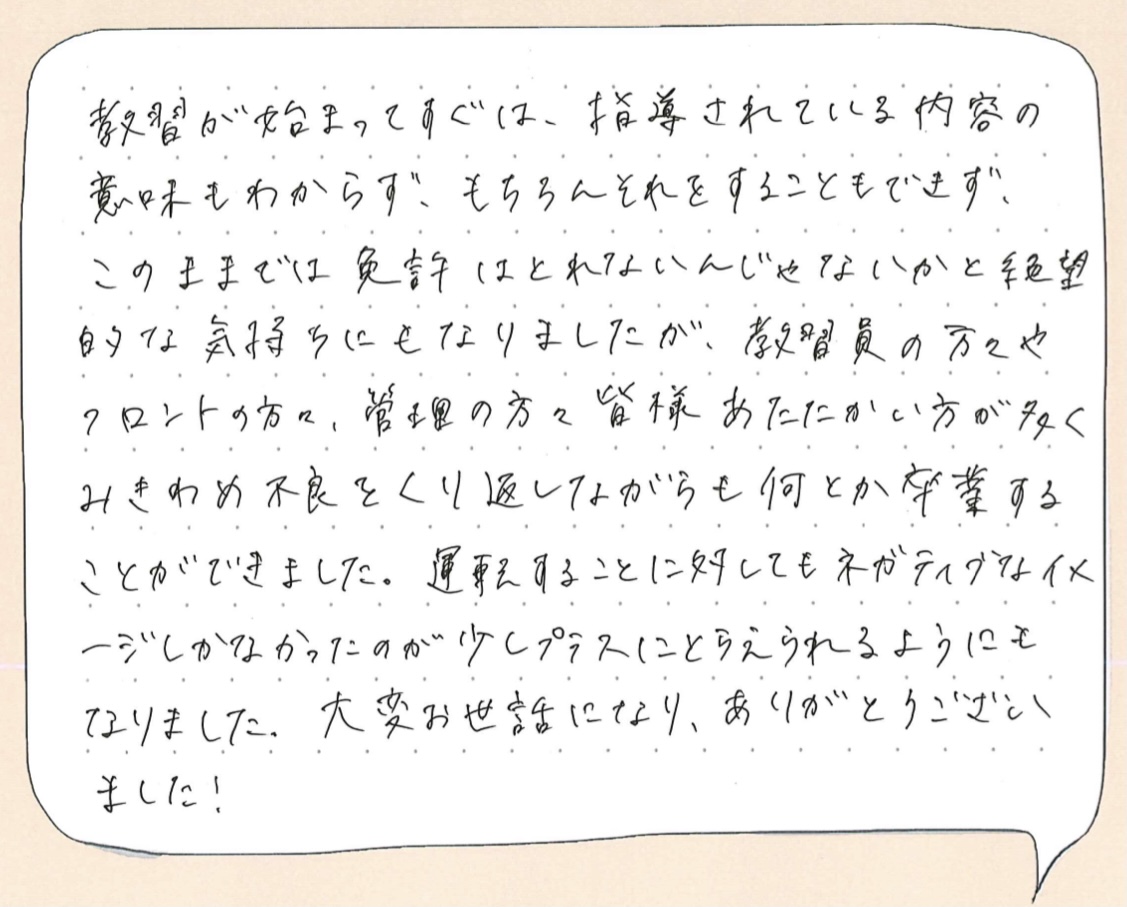 教習が始まってすぐは、指導されている内容の
意味もわからず、もちろんそれをすることもできず、
このままでは免許はとれないんじゃないかと絶望
的な気持ちにもなりましたが、教習員の方々や
フロントの方々、管理の方々皆様あたたかい方が多く
みきわめ不良をくり返しながらも何とか卒業する
ことができました。運転することに対してもネガティブなイメ
ージしかなかったのが少しプラスにとらえられるようにも
なりました。大変お世話になり、ありがとうござい
ました!